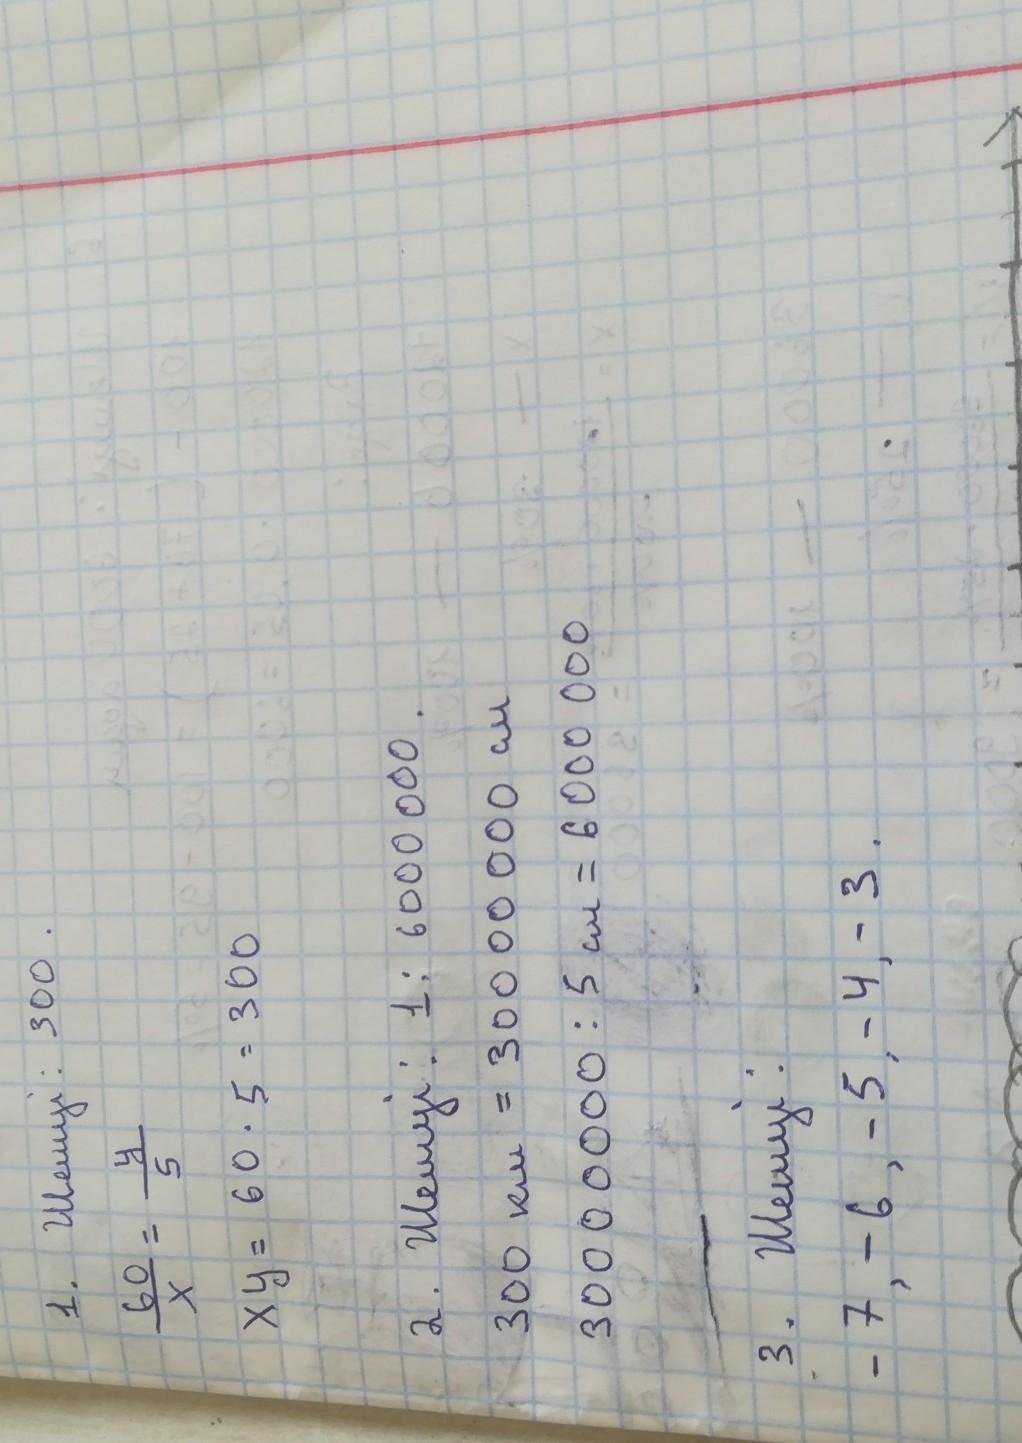 1. Шешуі: 300.
60/x = y/5
xy = 60 · 5 = 300
2. Шешуі: 1 : 6000 000.
300 км = 300 00 000 см
300 0 0 000 : 5 см = 6 000 000
3. Шешуі:
- 7, - 6, - 5, - 4, - 3.